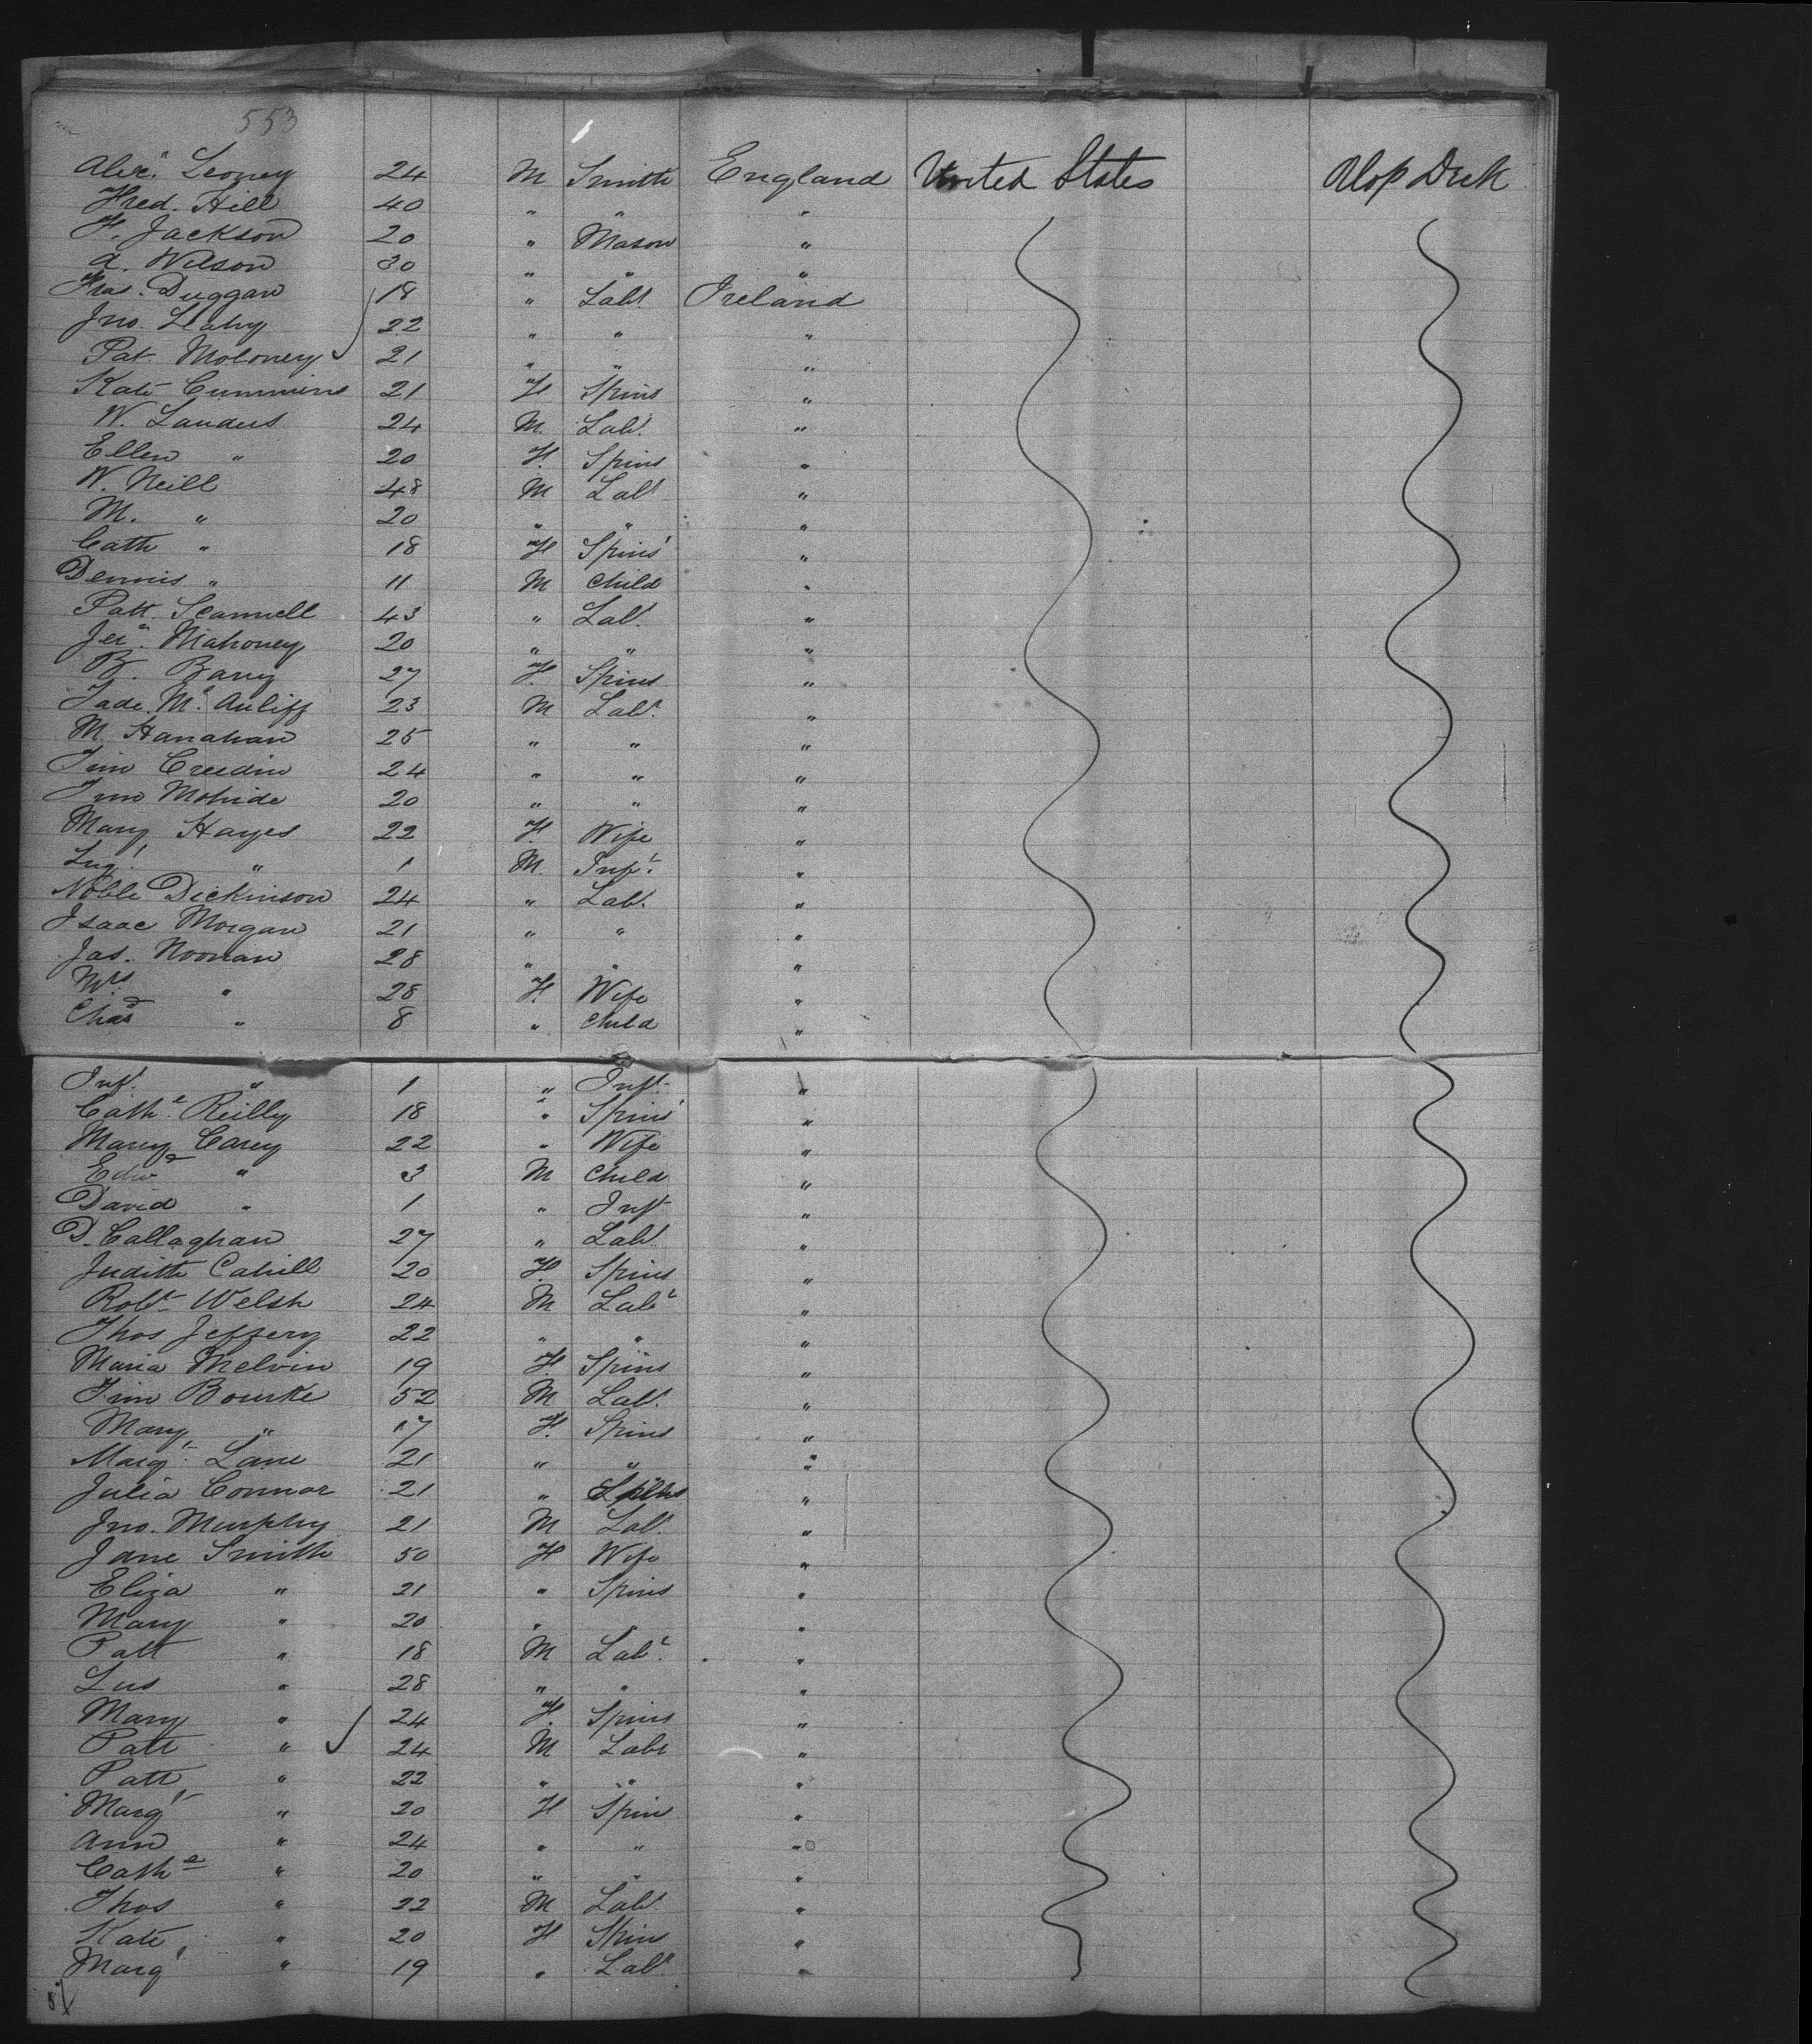 553
Alex.r 24 M Smith England United States
Fred. Hill 40 " " "
F. Jackson 20 " Mason "
A. Wilson 30 " " "
Fras. Duggan 18 " Labr Ireland
Jno. Leahy 22 " " "
Pat. Moloney 21 " " "
Kate Cummins 21 F Spins "
W. Landers 24 M. Labr. "
Ellen " 20 F. Spins "
W. Neill 48 M Labr "
M. " 20 " " "
Cath " 18 F Spins "
Dennis " 11 M Child "
Patt. Scannell 43 " Labr. "
Jera. Mahoney 20 " " "
B. Barry 27 F. Spins "
Tade. Mc. Auliff 23 M Labr. "
M. Hanahan 25 " " "
Tim Creedin 24 " " "
Tim 20 " " "
Mary Hayes 22 F. Wife "
" 1 M. Inft. "
Noble Dickinson 24 " Labr. "
Isaac Morgan 21 " " "
Jas. Noonan 28 " " "
Mrs " 28 F. Wife "
Chas " 8 " Child "
Inft. " 1 " Inft. "
Cathe. Reilly 18 " Spins "
Mary Carey 22 " Wife "
Edwd " 3 M Child "
David " 1 " Inft "
D. Callaghan 27 " Labr. "
Judith Cahill 20 F. Spins "
Robt Welsh 24 M Labr "
Thos Jeffery 22 " " "
Maria Melvin 19 F. Spins "
Tim Bourke 52 M Labr. "
Mary " 17 F. Spins "
Margt. Lane 21 " " "
Julia Connor 21 " Spins "
Jno. Murphy 21 M Labr. "
Jane Smith 50 F Wife "
Eliza " 21 " Spins "
Mary " 20 " " "
Patt " 18 M Labr. "
" 28 " " "
Mary " 24 F. Spins "
Patt " 24 M Labr "
Patt " 22 " " "
Margt " 20 F Spin "
Ann " 24 " " "
Cathe " 20 " " "
Thos " 22 M Labr. "
Kate " 20 F Spins "
Margt " 19 " Labr. "
57